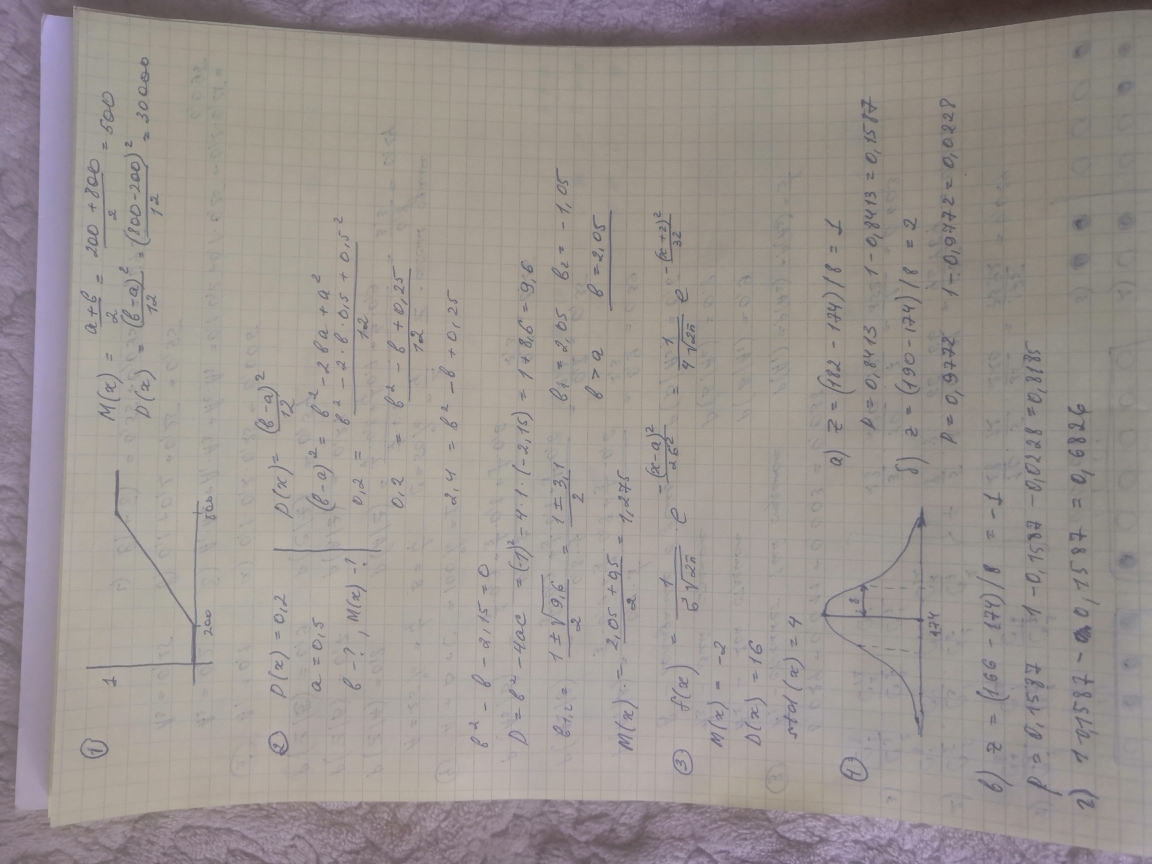 1
1
200 800
M(x) = (a+b)/2 = (200+800)/2 = 500
D(x) = (b-a)²/12 = (800-200)²/12 = 30000
2
D(x) = 0,2
a = 0,5
b - ? , M(x) - ?
D(x) = (b-a)²/12
(b-a)² = b² - 2ba + a²
0,2 = (b² - 2·b·0,5 + 0,5²)/12
0,2 = (b² - b + 0,25)/12
2,4 = b² - b + 0,25
b² - b - 2,15 = 0
D = b² - 4ac = (-1)² - 4·1·(-2,15) = 1 + 8,6 = 9,6
b1,2 = (1 ± √9,6)/2 = (1 ± 3,1)/2 b1 = 2,05 b2 = -1,05
b > a b = 2,05
M(x) = (2,05 + 0,5)/2 = 1,275
3 f(x) = 1/(б√2π) · e^(-(x-a)²/2б²) = 1/(4√2π) e^(-(x+2)²/32)
M(x) = -2
D(x) = 16
std(x) = 4
4
8
174
а) z = (182 - 174)/8 = 1
P = 0,8413 1 - 0,8413 = 0,1587
б) z = (190 - 174)/8 = 2
P = 0,9772 1 - 0,9772 = 0,0228
в) z = (166 - 174)/8 = -1
P = 0,1587 1 - 0,1587 - 0,0228 = 0,8185
г) 1-0,1587 - 0,1587 = 0,6826